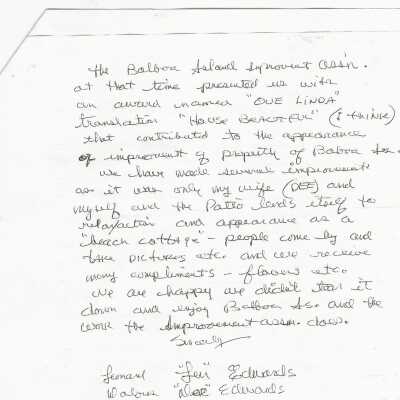 the Balboa Island Improvement Ass'n.
at that time presented us with
an award named "QUE LINDA"
translation "HOUSE BEAUTIFUL" (I think)
that contributed to the appearance
or improvement of property of Balboa Is.
we have made several improvements
as it was only my wife (DEE) and
myself and the Patio lends itself to
relaxation and appearance as a
"beach cottage" - people come by and
take pictures etc. and we receive
many compliments - flowers etc.
we are happy we didn't tear it
down and enjoy Balboa Is. and the
work the Improvement assn. does.
Sincerely
Leonard "Len" Edwards
"Dee" Edwards